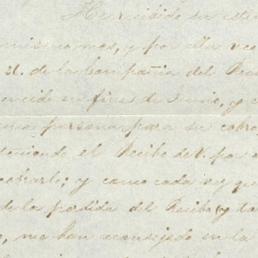 He recibido su esti
mismo mes, y por ella veo
21. de la Compañia del
encido en fines de Junio, y
una persona para su cobro,
el Recibo de V. por
; y como cada vez que
de la perdida del Recibo y ta
, me han aconsejado en la